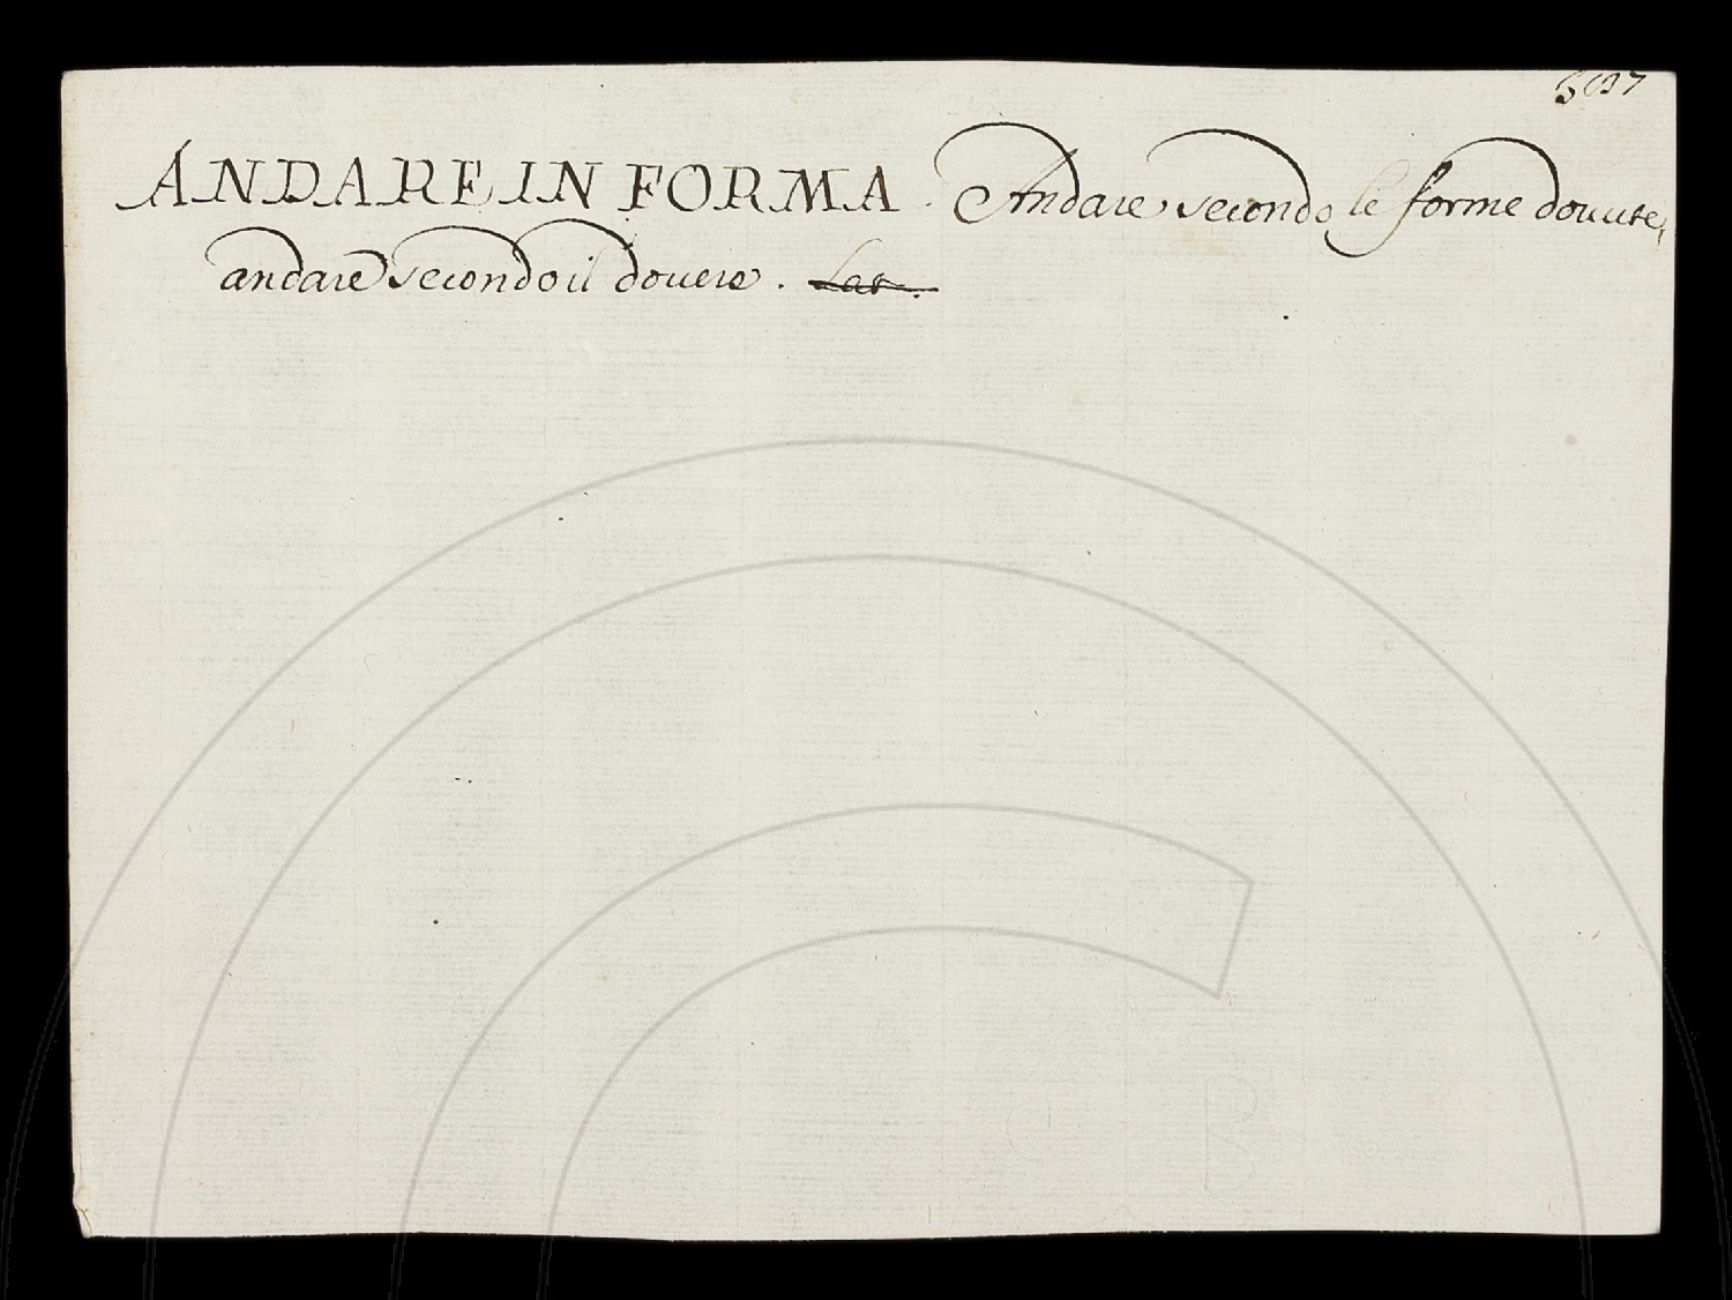 ANDARE IN FORMA. Andare secondo le forme douute,
andare secondo il douere. Lat.